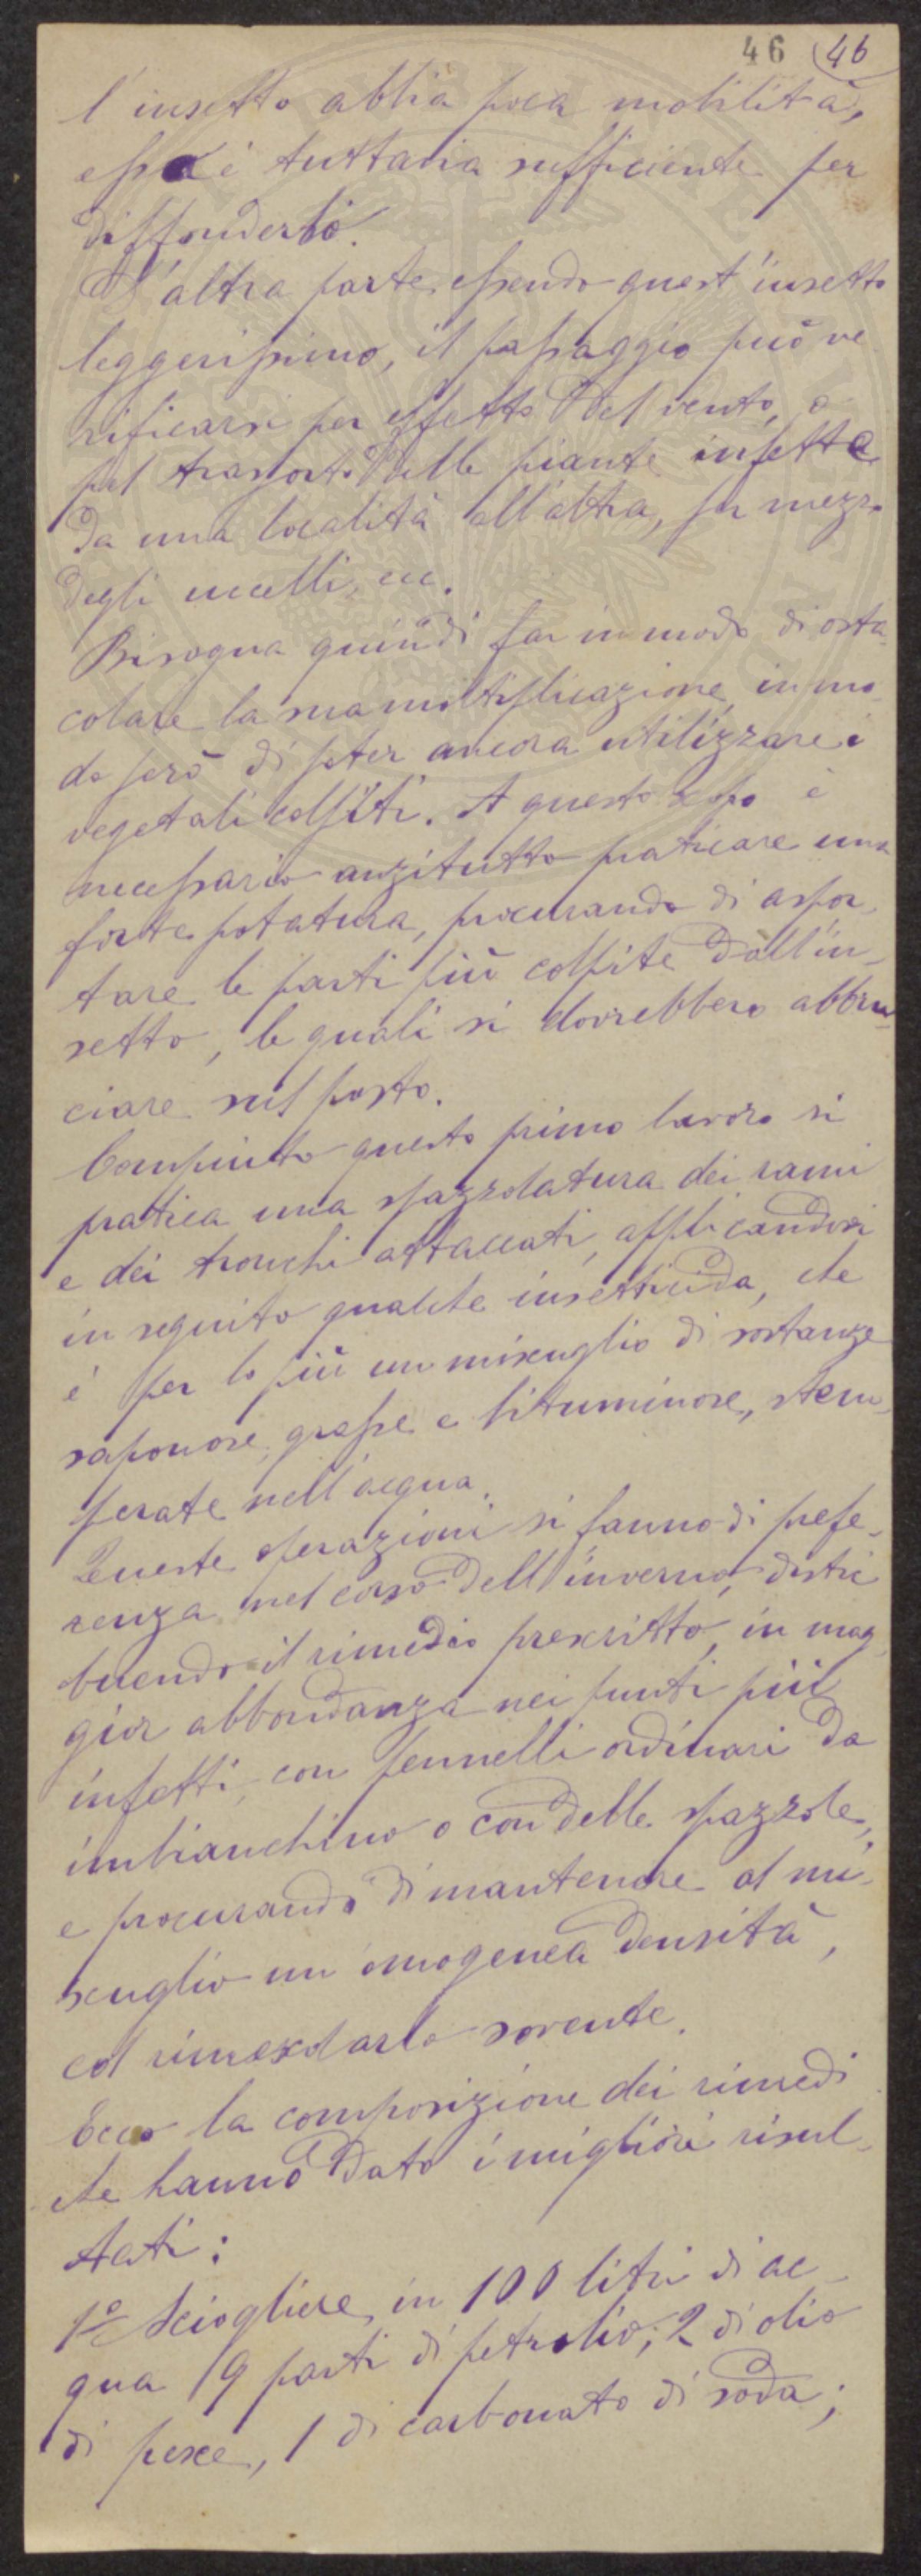 46 (46
l'insetto abbia poca mobilità,
essa è tuttavia sufficiente per
diffonderlo.
D'altra parte essendo quest'insetto
leggerissimo, il passaggio può ve
rificarsi per effetto del vento, o
pel trasporto delle piante infette
da una località all'altra, per mezzo
degli uccelli, ecc.
Bisogna quindi far in modo di osta
colare la sua moltiplicazione, in mo
do però di poter ancora utilizzare i
vegetali colpiti. A questo scopo è
necessario anzitutto praticare una
forte potatura, procurando di aspor-
tare le parti più colpite dall'in-
setto, le quali si dovrebbero abbru-
ciare sul posto.
Compiuto questo primo lavoro si
pratica una spazzolatura dei rami
e dei tronchi attaccati, applicandovi
in seguito qualche insetticida, che
è per lo più un miscuglio di sostanze
saponose, grasse e bituminose, stem-
perate nell'acqua.
Queste operazioni si fanno di prefe-
renza nel corso dell'inverno, distri
buendo il rimedio prescritto, in mag
gior abbondanza nei punti più
infetti, con pennelli ordinari da
imbianchino o con delle spazzole,
e procurando di mantenere al mi-
scuglio un'omogenea densità,
col rimescolarlo sovente.
Ecco la composizione dei rimedi
che hanno dato i migliori risul-
tati:
1º Sciogliere in 100 litri di ac-
qua 9 parti di petrolio; 2 di olio
di pesce, 1 di carbonato di soda;